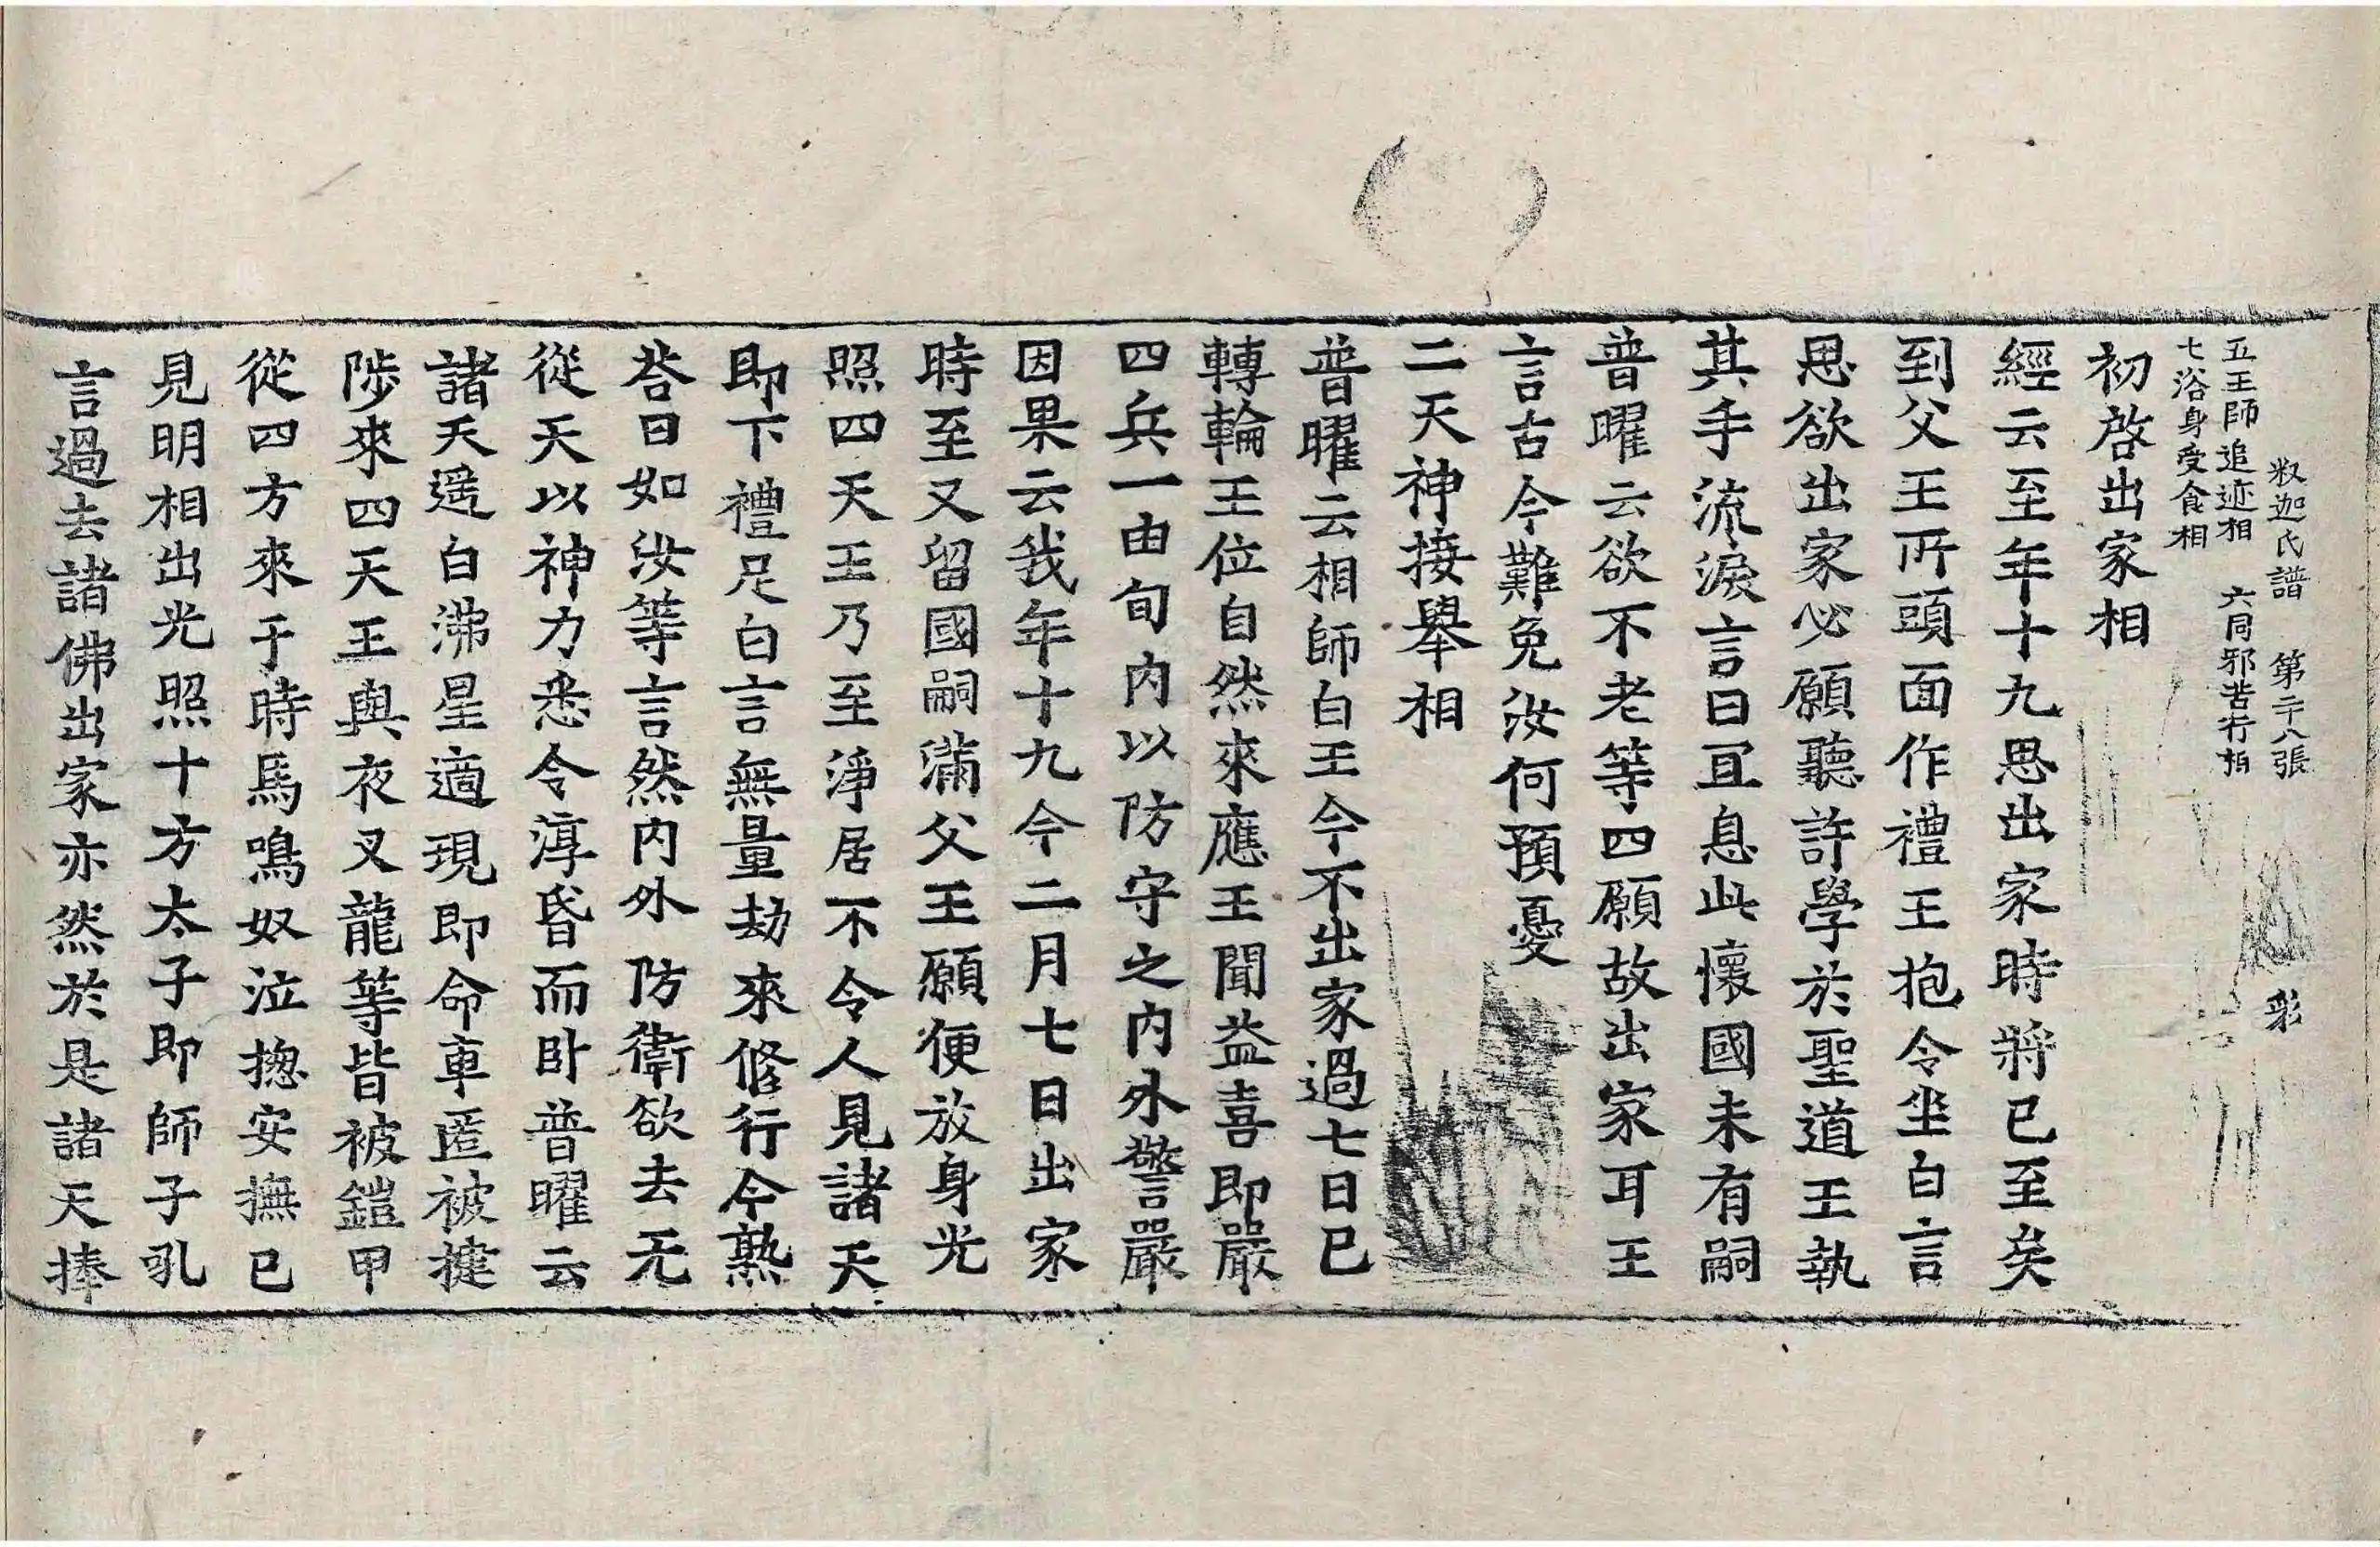 釈迦氏譜　第二十八張　彩
五王師追迹相　六同邪苦行相
七浴身受食相
初啓出家相
經云至年十九思出家時將已至矣
到父王所頭面作禮王抱令坐白言
恩欲出家必願聽許學於聖道王執
其手流淚言曰冝息此懷國未有嗣
普曜云欲不老等四願故出家耳王
言古今難免汝何預憂
二天神接舉相
普曜云相師白王今不出家過七日已
轉輪王位自然來應王聞益喜即嚴
四兵一由旬内以防守之内外警嚴
因果云我年十九今二月七日出家
時至又留國嗣滿父王願便放身光
照四天王乃至淨居不令人見諸天
即下禮足白言無量劫來修行今熟
荅曰如汝等言然内外防衛欲去无
從天以神力悉令淳昏而卧普曜云
諸天遥白沸星適現即命車匿被揵
陟來四天王與夜叉龍等皆被鎧甲
從四方來于時馬鳴奴泣揔安撫已
見明相出光照十方太子即師子吼
言過去諸佛出家亦然於是諸天捧